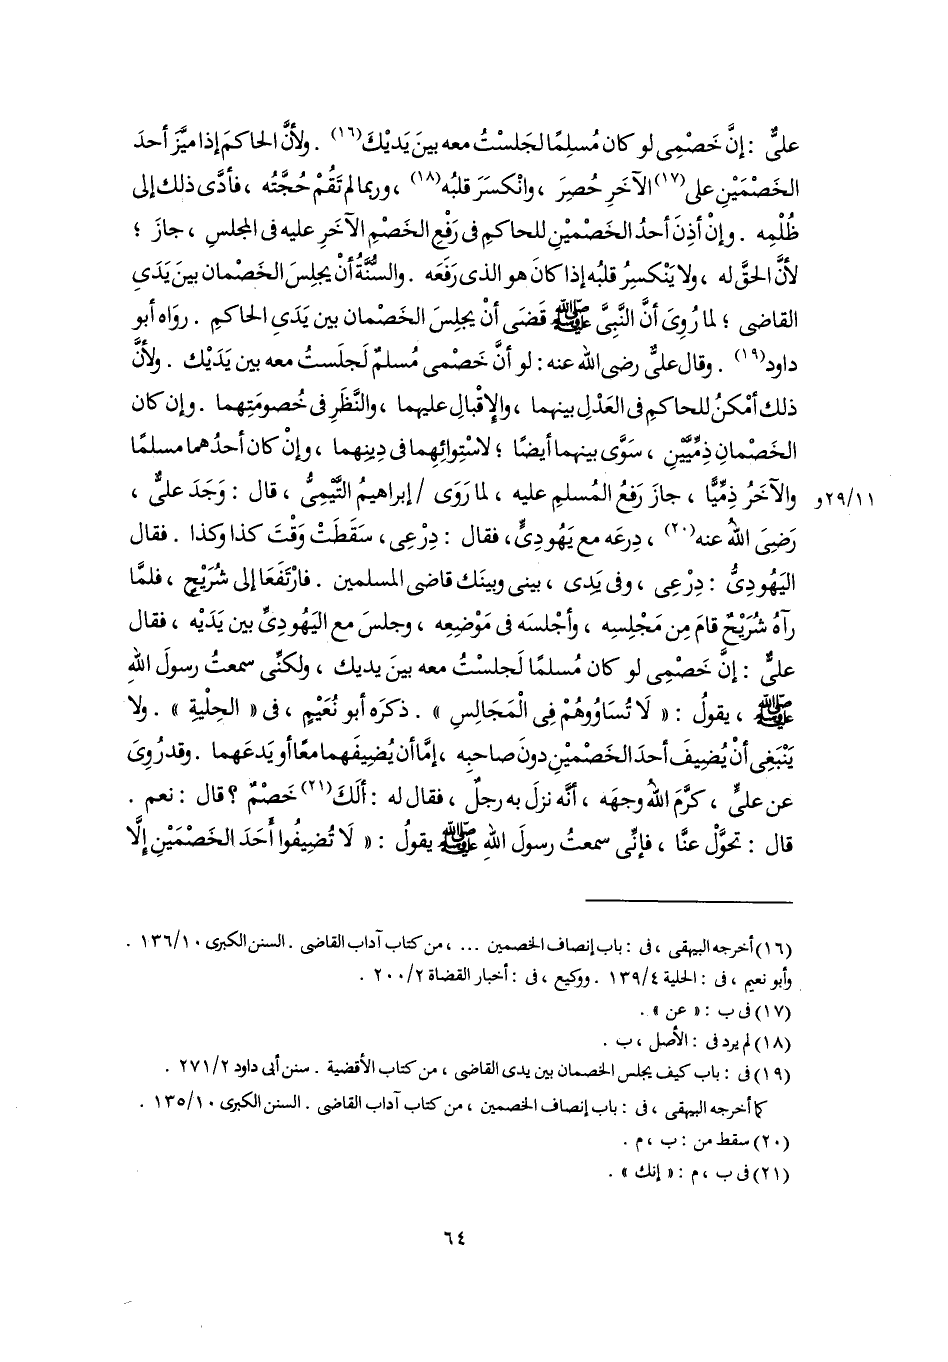 علىٌّ : إنَّ خَصْمِى لو كان مُسلِمًا لجَلستُ معه بينَ يَديْكَ(١٦) . ولأنَّ الحاكمَ إذا ميَّزَ أحدَ
الخَصْمَيْنِ على(١٧) الآخَرِ حُصِرَ ، وانْكسَرَ قلبُه(١٨) ، وربما لم تَقُمْ حُجَّتُه ، فأدَّى ذلك إلى
ظُلْمِه . وإنْ أذِنَ أحدُ الخَصْمَيْنِ للحاكمِ فى رَفْعِ الخَصْمِ الآخَرِ عليه فى المجلسِ ، جازَ ؛
لأنَّ الحقَّ له ، ولا يَنْكسِرُ قلبُه إذا كانَ هو الذى رَفَعَه . والسُّنَّةُ أنْ يجلِسَ الخَصْمان بينَ يَدَىِ
القاضى ؛ لما رُوِىَ أنَّ النَّبِىَّ ﷺ قَضَى أن يجلِسَ الخَصْمان بين يَدَىِ الحاكمِ . رواه أبو
داود(١٩) . وقال علىٌّ رضى الله عنه : لو أنَّ خَصْمى مُسلمٌ لَجلَستُ معه بين يَدَيْك . ولأنَّ
ذلك أمْكنُ للحاكمِ فى العَدْلِ بينهما ، والإقْبالِ عليهما ، والنَّظَرِ فى خُصومَتِهما . وإن كان
الخَصْمانِ ذِمِّيَّيْنِ ، سَوَّى بينهما أيضًا ؛ لاسْتِوائِهما فى دِينِهما ، وإنْ كان أحدُهما مسلمًا
٢٩/١١و والآخَرُ ذِمِّيًّا ، جازَ رَفْعُ المُسلمِ عليه ، لما رَوَى / إبراهيمُ التَّيْمِىُّ ، قال : وَجَدَ علىٌّ ،
رَضِىَ اللهُ عنه(٢٠) ، دِرعَه مع يَهُودِىٍّ ، فقال : دِرْعِى ، سَقَطَتْ وَقْتَ كذا وكذا . فقال
اليَهُودِىُّ : دِرْعِى ، وفى يَدِى ، بينى وبينَك قاضى المسلمين . فارْتَفَعَا إلى شُرَيْحٍ ، فلمَّا
رآهُ شُرَيْحٌ قامَ مِن مَجْلِسِه ، وأجْلسَه فى مَوْضِعِه ، وجلسَ مع اليَهُودِىِّ بين يَدَيْه ، فقال
علىٌّ : إنَّ خَصْمِى لو كان مُسلمًا لَجلستُ معه بينَ يديك ، ولكنِّى سمعتُ رسولَ اللهِ
ﷺ ، يقولُ : « لَا تُسَاوُوهُمْ فِى الْمَجَالِسِ » . ذكرَه أبو نُعَيْمٍ ، فى « الحِلْيةِ » . ولا
يَنْبَغِى أنْ يُضِيفَ أحدَ الخَصْمَيْنِ دونَ صاحبِه ، إمَّا أن يُضيفَهما معًا أو يَدعَهما . وقد رُوِىَ
عن علىٍّ ، كرَّمَ اللهُ وجهَه ، أنَّه نزلَ به رجلٌ ، فقال له : ألَكَ(٢١) خَصْمٌ ؟ قال : نعم .
قال : تحوَّلْ عنَّا ، فإنِّى سمعتُ رسولَ اللهِ ﷺ يقولُ : « لَا تُضِيفُوا أَحَدَ الخَصْمَيْنِ إلَّا
(١٦) أخرجه البيهقى ، فى : باب إنصاف الخصمين ... ، من كتاب آداب القاضى . السنن الكبرى ١٣٦/١٠ .
وأبو نعيم ، فى : الحلية ١٣٩/٤ . ووكيع ، فى : أخبار القضاة ٢٠٠/٢ .
(١٧) فى ب : « عن » .
(١٨) لم يرد فى : الأصل ، ب .
(١٩) فى : باب كيف يجلس الخصمان بين يدى القاضى ، من كتاب الأقضية . سنن أبى داود ٢٧١/٢ .
كما أخرجه البيهقى ، فى : باب إنصاف الخصمين ، من كتاب آداب القاضى . السنن الكبرى ١٣٥/١٠ .
(٢٠) سقط من : ب ، م .
(٢١) فى ب ، م : « إنك » .
٦٤